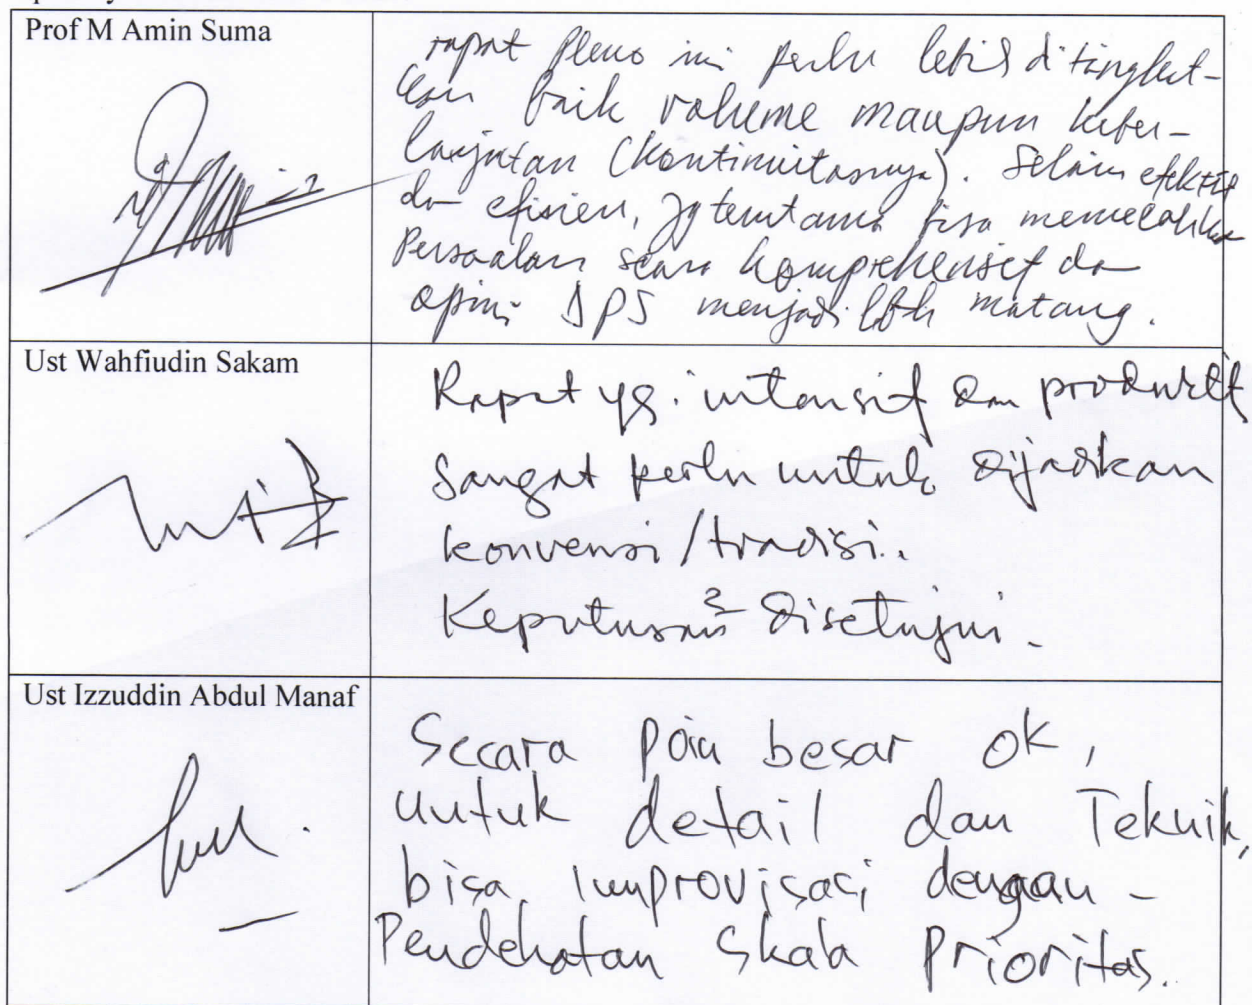 Prof M Amin Suma
rapat pleno ini perlu lebih ditingkat-
kan baik volume maupun keber-
lanjutan (kontinuitasnya). Selain efektif
dan efisien, jg terutama bisa memecahkan
Persoalan secara komprehensif dan
opini DPS menjadi lebih matang.
Ust Wahfiudin Sakam
Rapat yg. intensif dan produktif
Sangat perlu untuk dijadikan
konvensi/tradisi.
Keputusan² disetujui.
Ust Izzuddin Abdul Manaf
Secara poin besar ok,
untuk detail dan Teknik,
bisa improvisasi dengan -
Pendekatan Skala Prioritas.